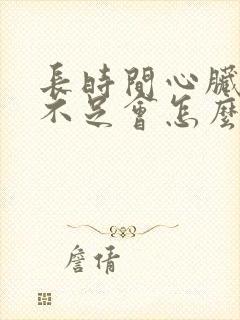 長時間心臟
不足會怎麼
詹倩